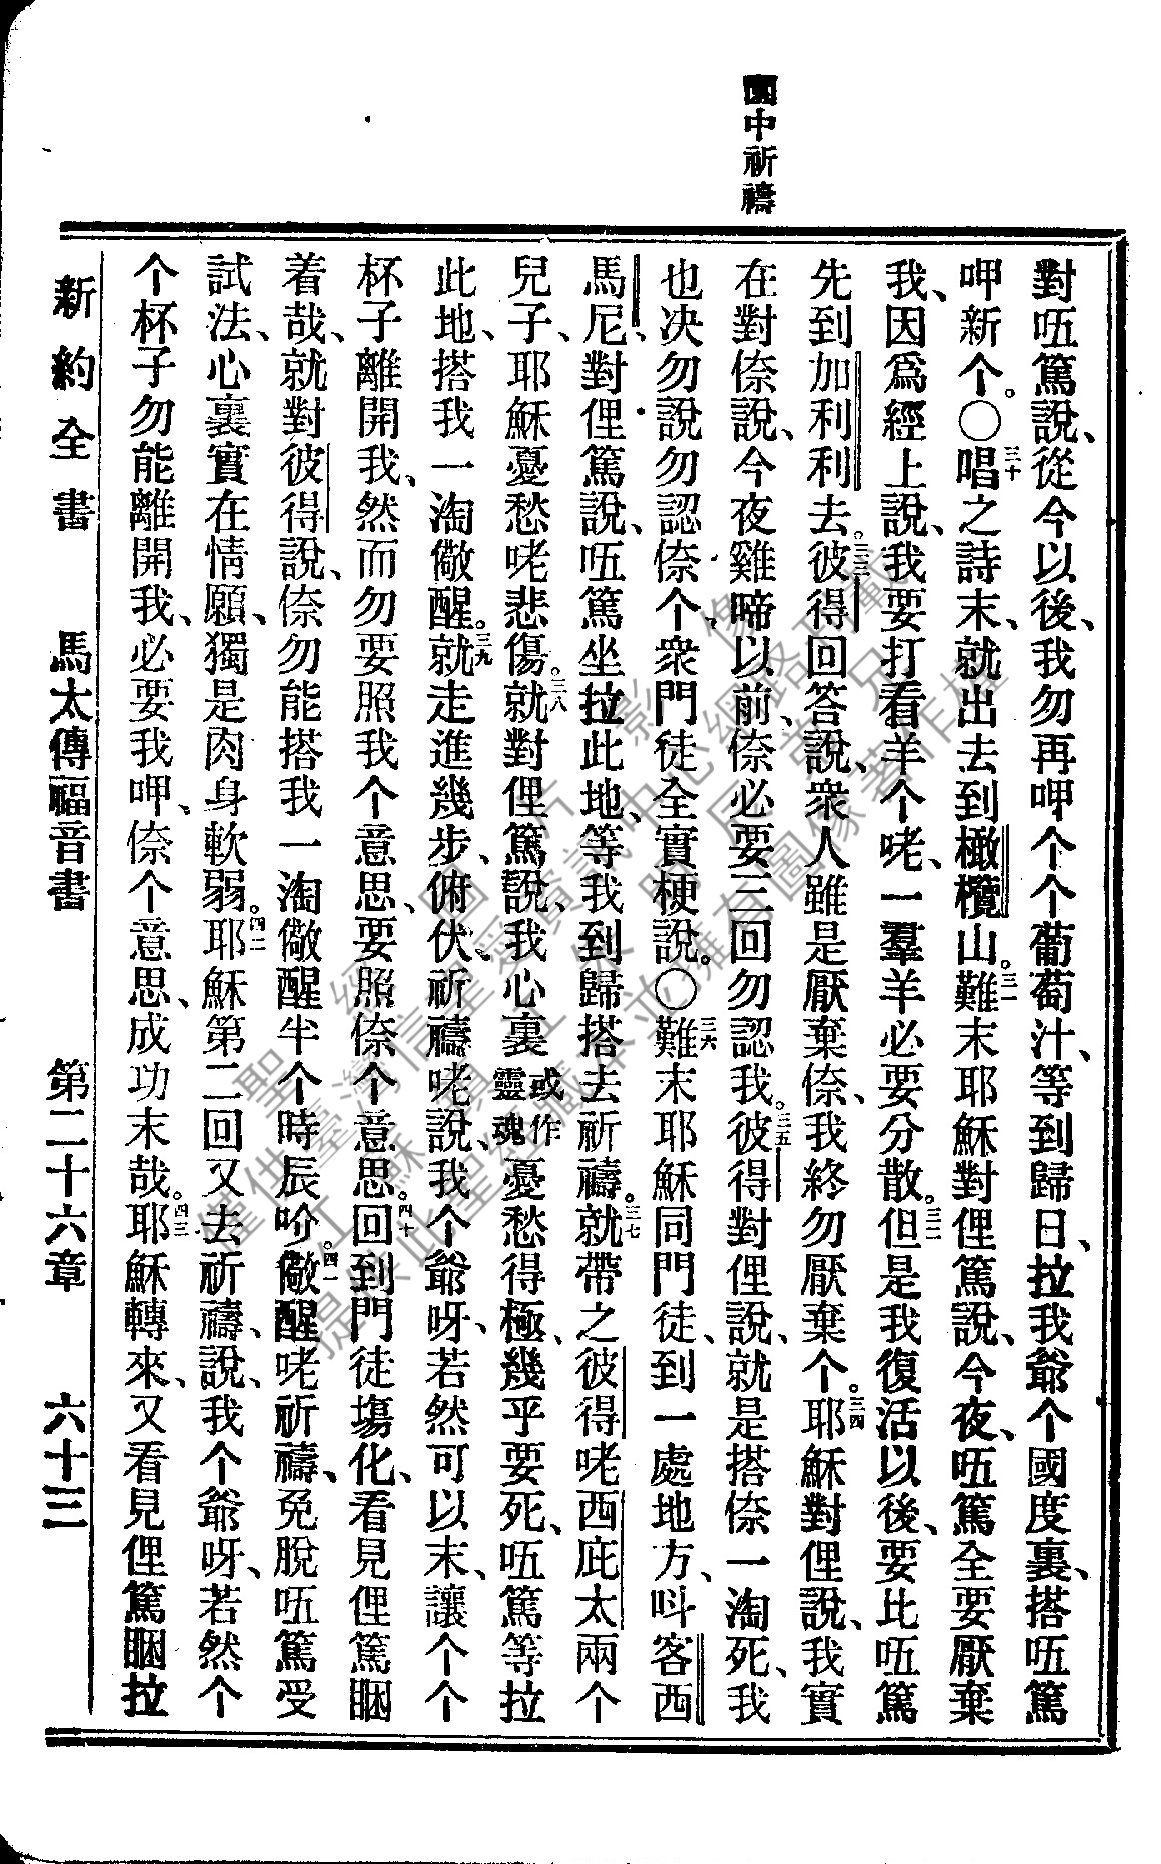 園中祈禱
對㕶篤說、從今以後、我勿再呷个个葡萄汁、等到歸日、拉我爺个國度裏、搭㕶篤
呷新个。〇三十唱之詩末、就出去到橄欖山。三一難末耶穌對俚篤說、今夜、㕶篤全要厭棄
我、因爲經上說、我要打看羊个咾、一羣羊必要分散。三二但是我復活以後、要比㕶篤
先到加利利去。三三彼得回答說、衆人雖是厭棄倷、我終勿厭棄个。三四耶穌對俚說、我實
在對倷說、今夜雞啼以前、倷必要三回勿認我。三五彼得對俚說、就是搭倷一淘死、我
也決勿說勿認倷个、衆門徒全實梗說。〇三六難末耶穌同門徒、到一處地方、呌客西
馬尼、對俚篤說、㕶篤坐拉此地、等我到歸搭去祈禱。三七就帶之彼得咾西庇太兩个
兒子、耶穌憂愁咾悲傷。三八就對俚篤說、我心裏或作靈魂憂愁得極、幾乎要死、㕶篤等拉
此地、搭我一淘儆醒。三九就走進幾步、俯伏、祈禱咾說、我个爺呀、若然可以末、讓个个
杯子離開我、然而勿要照我个意思、要照倷个意思。四十回到門徒塲化、看見俚篤睏
着哉、就對彼得說、倷勿能搭我一淘儆醒半个時辰吤。四一儆醒咾祈禱、免脫㕶篤受
試法、心裏實在情願、獨是肉身軟弱。四二耶穌第二回又去祈禱、說、我个爺呀、若然个
个杯子勿能離開我、必要我呷、倷个意思、成功末哉。四三耶穌轉來、又看見俚篤睏拉
新約全書 馬太傳福音書 第二十六章 六十三
聖經圖片影像
僅供臺灣信望愛資訊中心網路下載